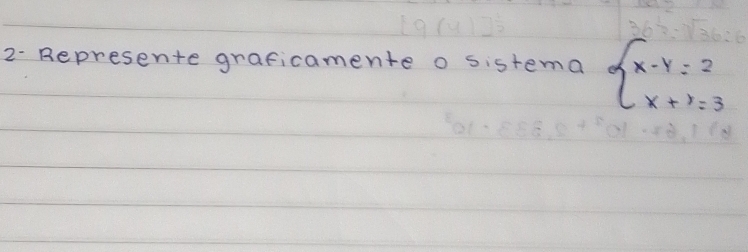 2- Represente graficamente o sistema { x-y=2
x+y=3